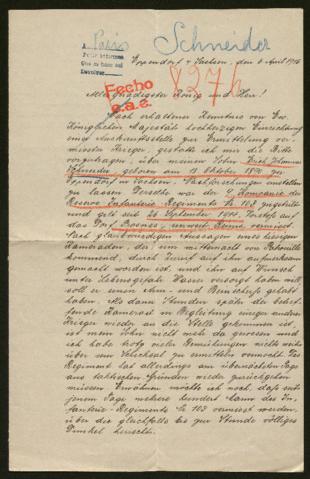 Paris
Schneider
Eppendorf i/Sachsen, den 6 April 1916
Fecho
e.a.e.
8276
Allergnädigster König und Herr!
Nach erhaltener Kenntnis von Ew.
Königlichen Majestät hochherzigen Einrichtung
und Auskunftsstelle zur Ermittelung ver-
misster Krieger, gestatte ich mir die Bitte
vorzutragen, über meinen Sohn Erich Johannes
Schneider, geboren am 18. Oktober 1890 zu
Eppendorf in Sachsen, Nachforschungen anstellen
zu lassen. Derselbe war der 9. Kompanie des
Reserve Infanterie Regiments № 102 zugeteilt
und gilt seit 26 September 1914,
das Dorf unweit Reims, vermisst.
Nach glaubwürdigen Aussagen eines hiesigen
Kameraden, der um Mitternacht von Patrouille
kommend, durch Zuruf auf ihn aufmerksam
gemacht worden ist, und ihn auf Wunsch
unter Lebensgefahr Wasser versorgt haben will,
soll er einen Arm- und Beinschuss gehabt
haben. Als dann Stunden später der betref-
fende Kamerad in Begleitung einiger anderer
Krieger wieder an die Stelle gekommen ist,
ist mein Sohn nicht mehr da gewesen und
ich habe trotz vieler Bemühungen nichts weiter
über sein Schicksal zu ermitteln vermocht. Das
Regiment hat allerdings am übernächsten Tage
aus taktischen Gründen wieder zurückgehen
müssen. Erwähnen möchte ich noch, dass seit
jenem Tage mehrere hundert Mann des In-
fanterie-Regiments № 102 vermisst werden,
über die gleichfalls bis zur Stunde völliges
Dunkel herrscht.